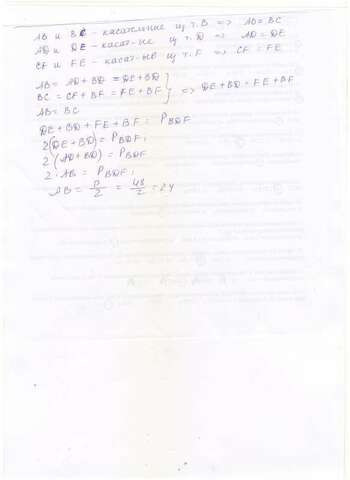 AB и BC - касательные из т.B => AB=BC
AD и DE - касат-ые из т.D => AD=DE
CF и FE - касат-ые из т.F => CF=FE
AB = AD+BD = DE+BD
BC = CF+BF = FE+BF } => DE+BD=FE+BF
AB=BC
DE+BD+FE+BF = PBDF
2(DE+BD) = PBDF,
2(AD+BD) = PBDF
2·AB = PBDF,
AB = P/2 = 48/2 = 24